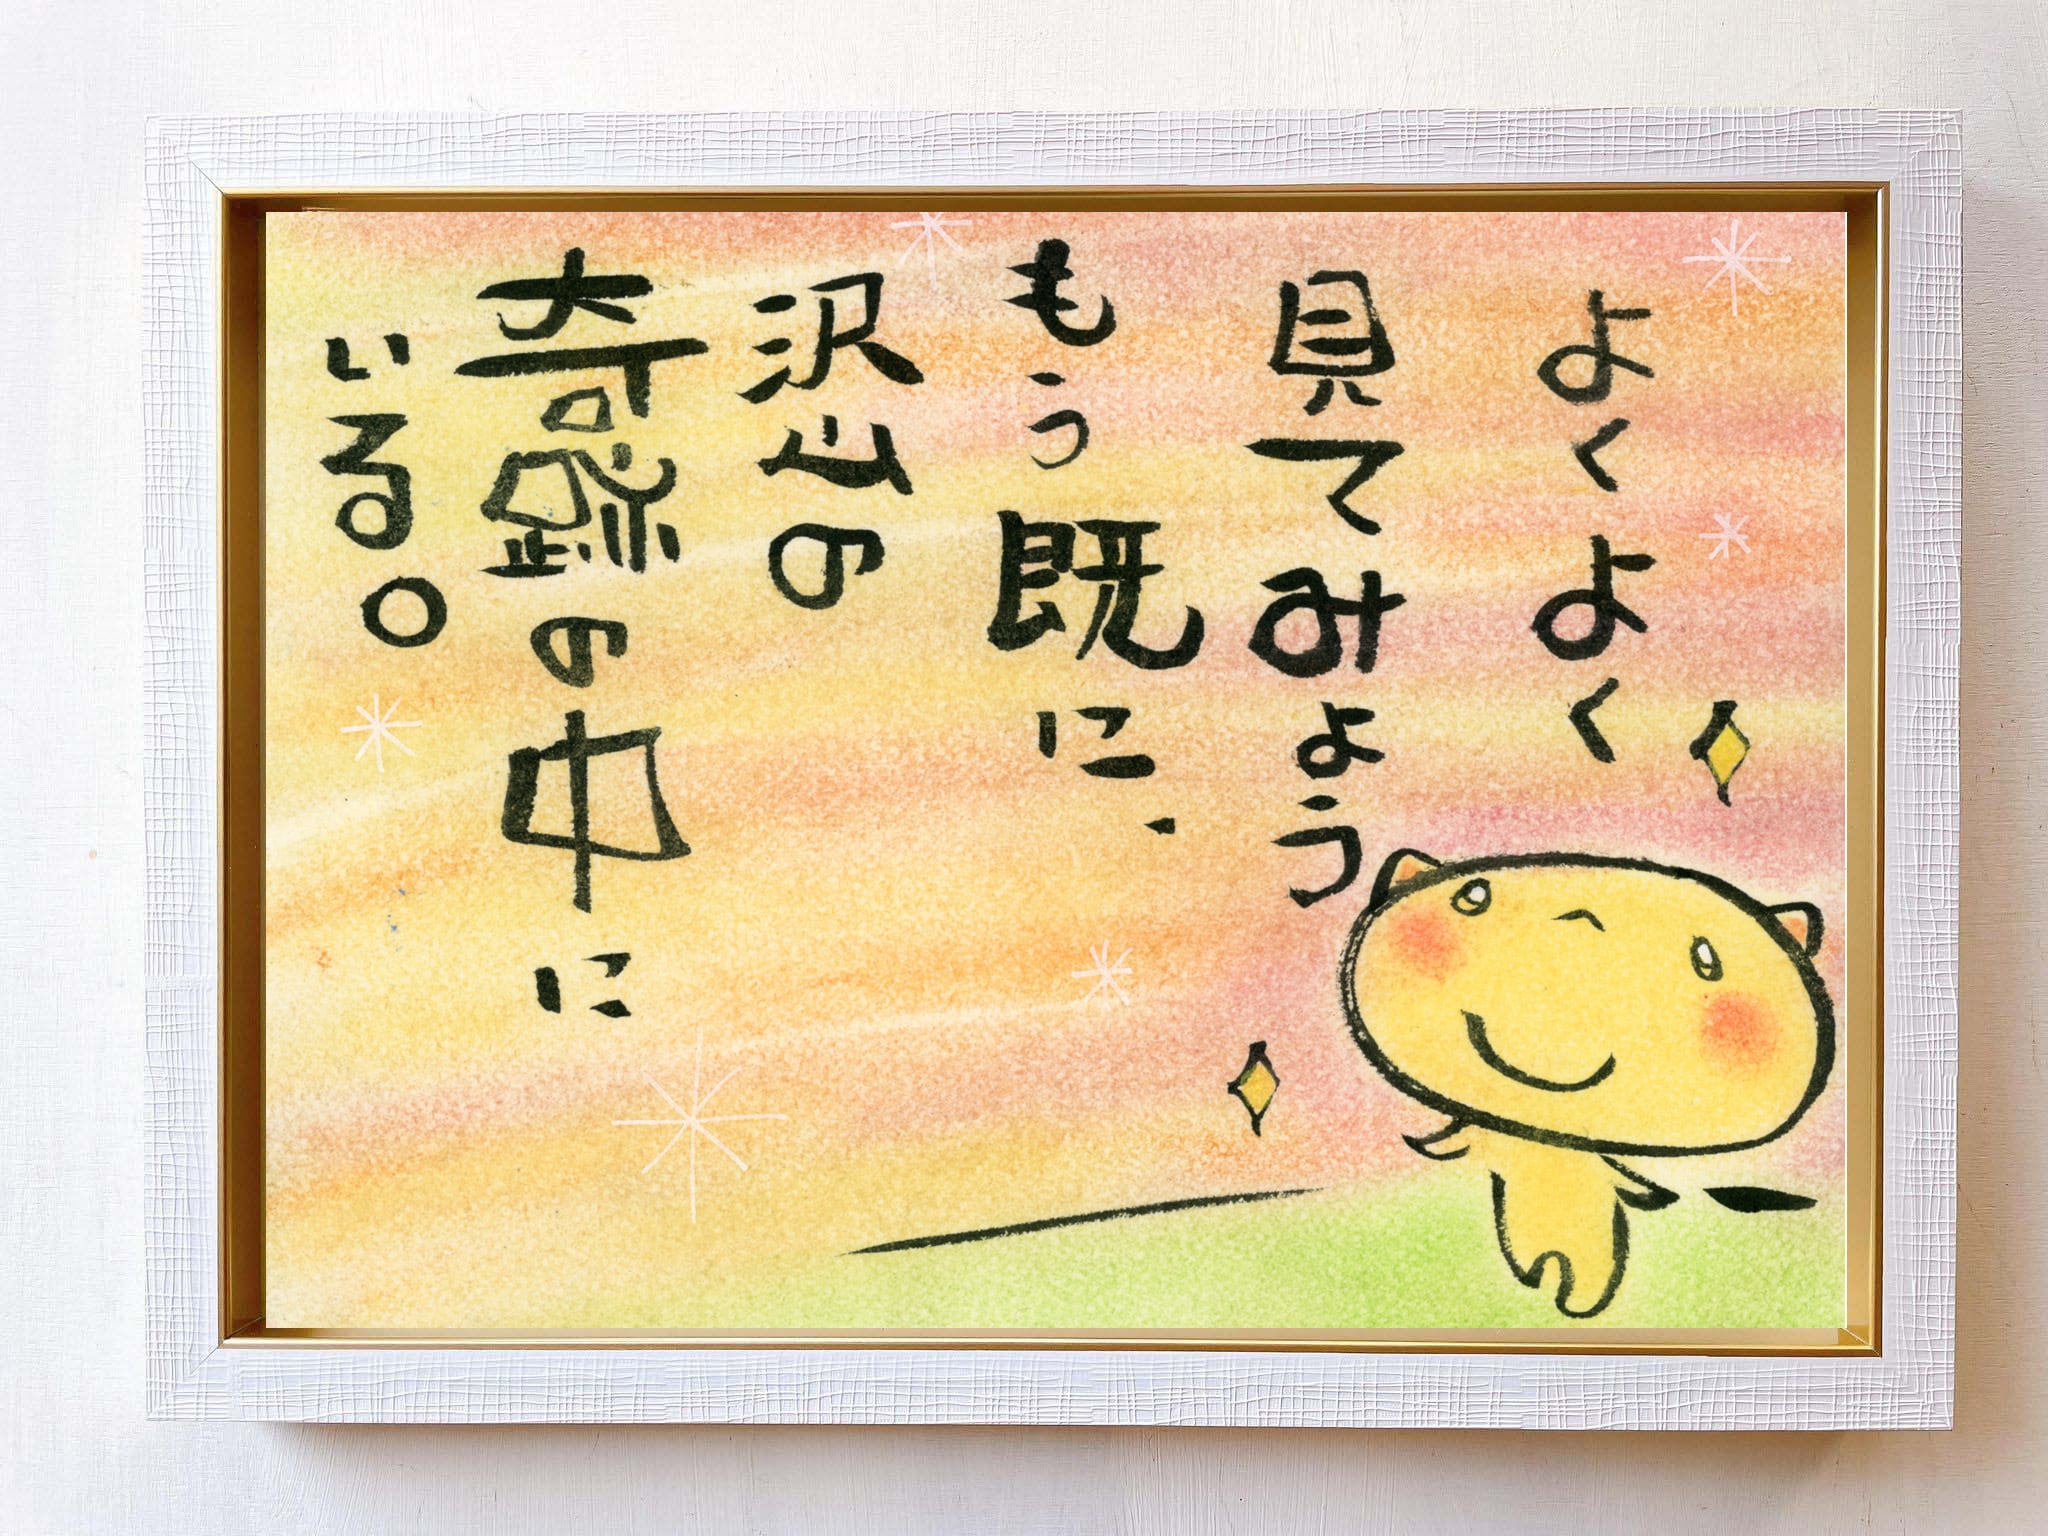 よくよく
見てみよう
もう既に、
沢山の
奇跡の中に
いる。